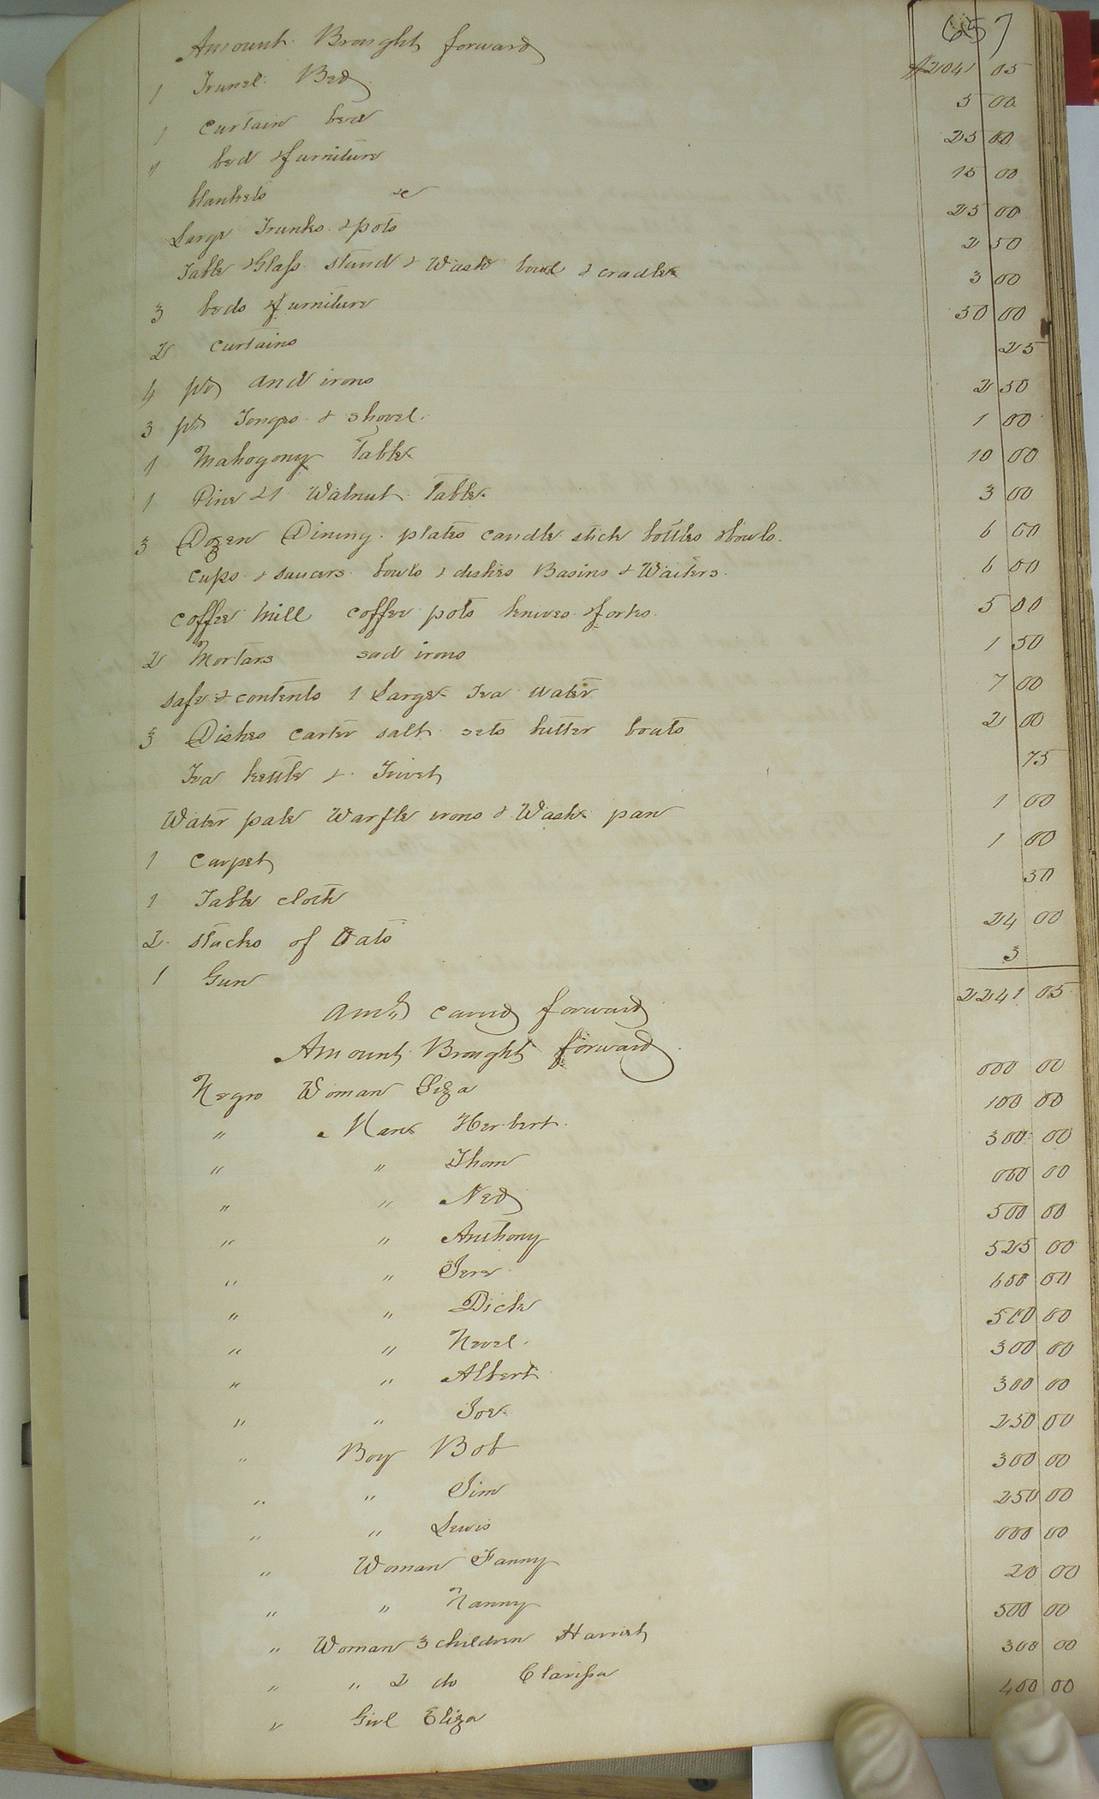 657
Amount Brought forward $2041 05
1 Trunel Bed 5 00
1 Curtain bed 25 00
1 bed & furniture 15 00
blankets &c 25 00
Large Trunks & pots 2 50
Table & Glass stand & Wash bowl & cradle 3 00
3 beds & furniture 50 00
2 curtains 25
4 pr and irons 2 50
3 pr Tongs & shovel 1 00
1 Mahogony Table 10 00
1 Pine & 1 Walnut Table 3 00
3 Dozen Dining plates candle stick bottles & bowls 6 00
cups & saucers bowls & dishes Basins & Waiters 6 00
coffee Mill coffee pots knives & forks 5 00
2 Mortars sad irons 1 50
safe & contents 1 Large Tea water 7 00
3 Dishes carter salt sets butter boats 2 00
Tea kettle & Trivet 75
Water pale Warfle irons & Wash pan 1 00
1 Carpet 1 00
1 Table cloth 50
2 stacks of Oats 24 00
1 Gun 3
Amt carrd forward 2241 05
Amount Brought forward
Negro Woman Siza 000 00
" Mans Herbert 100 00
" " Thom 300 00
" " Ned 000 00
" " Anthony 500 00
" " Jere 525 00
" " Dick 600 00
" " Nevel 500 00
" " Albert 300 00
" " Joe 300 00
" Boy Bob 250 00
" " Jim 300 00
" " Lewis 250 00
" Woman Fanny 000 00
" " Nanny 20 00
" Woman 3 children Harriet 500 00
" " 2 do Clarissa 300 00
" Girl Eliza 400 00